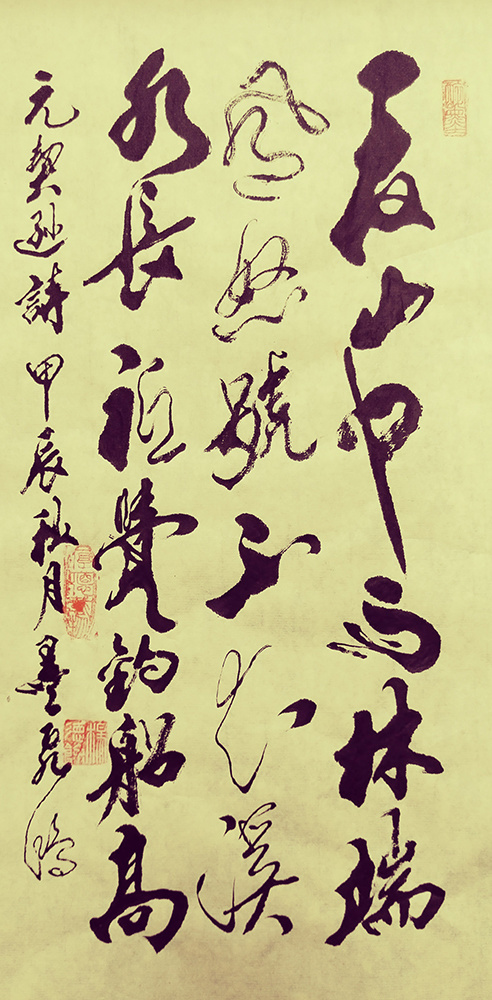 一夜山中雨林端
風怒號不知溪
水長祇覺釣船高
元契遜詩甲辰秋月墨